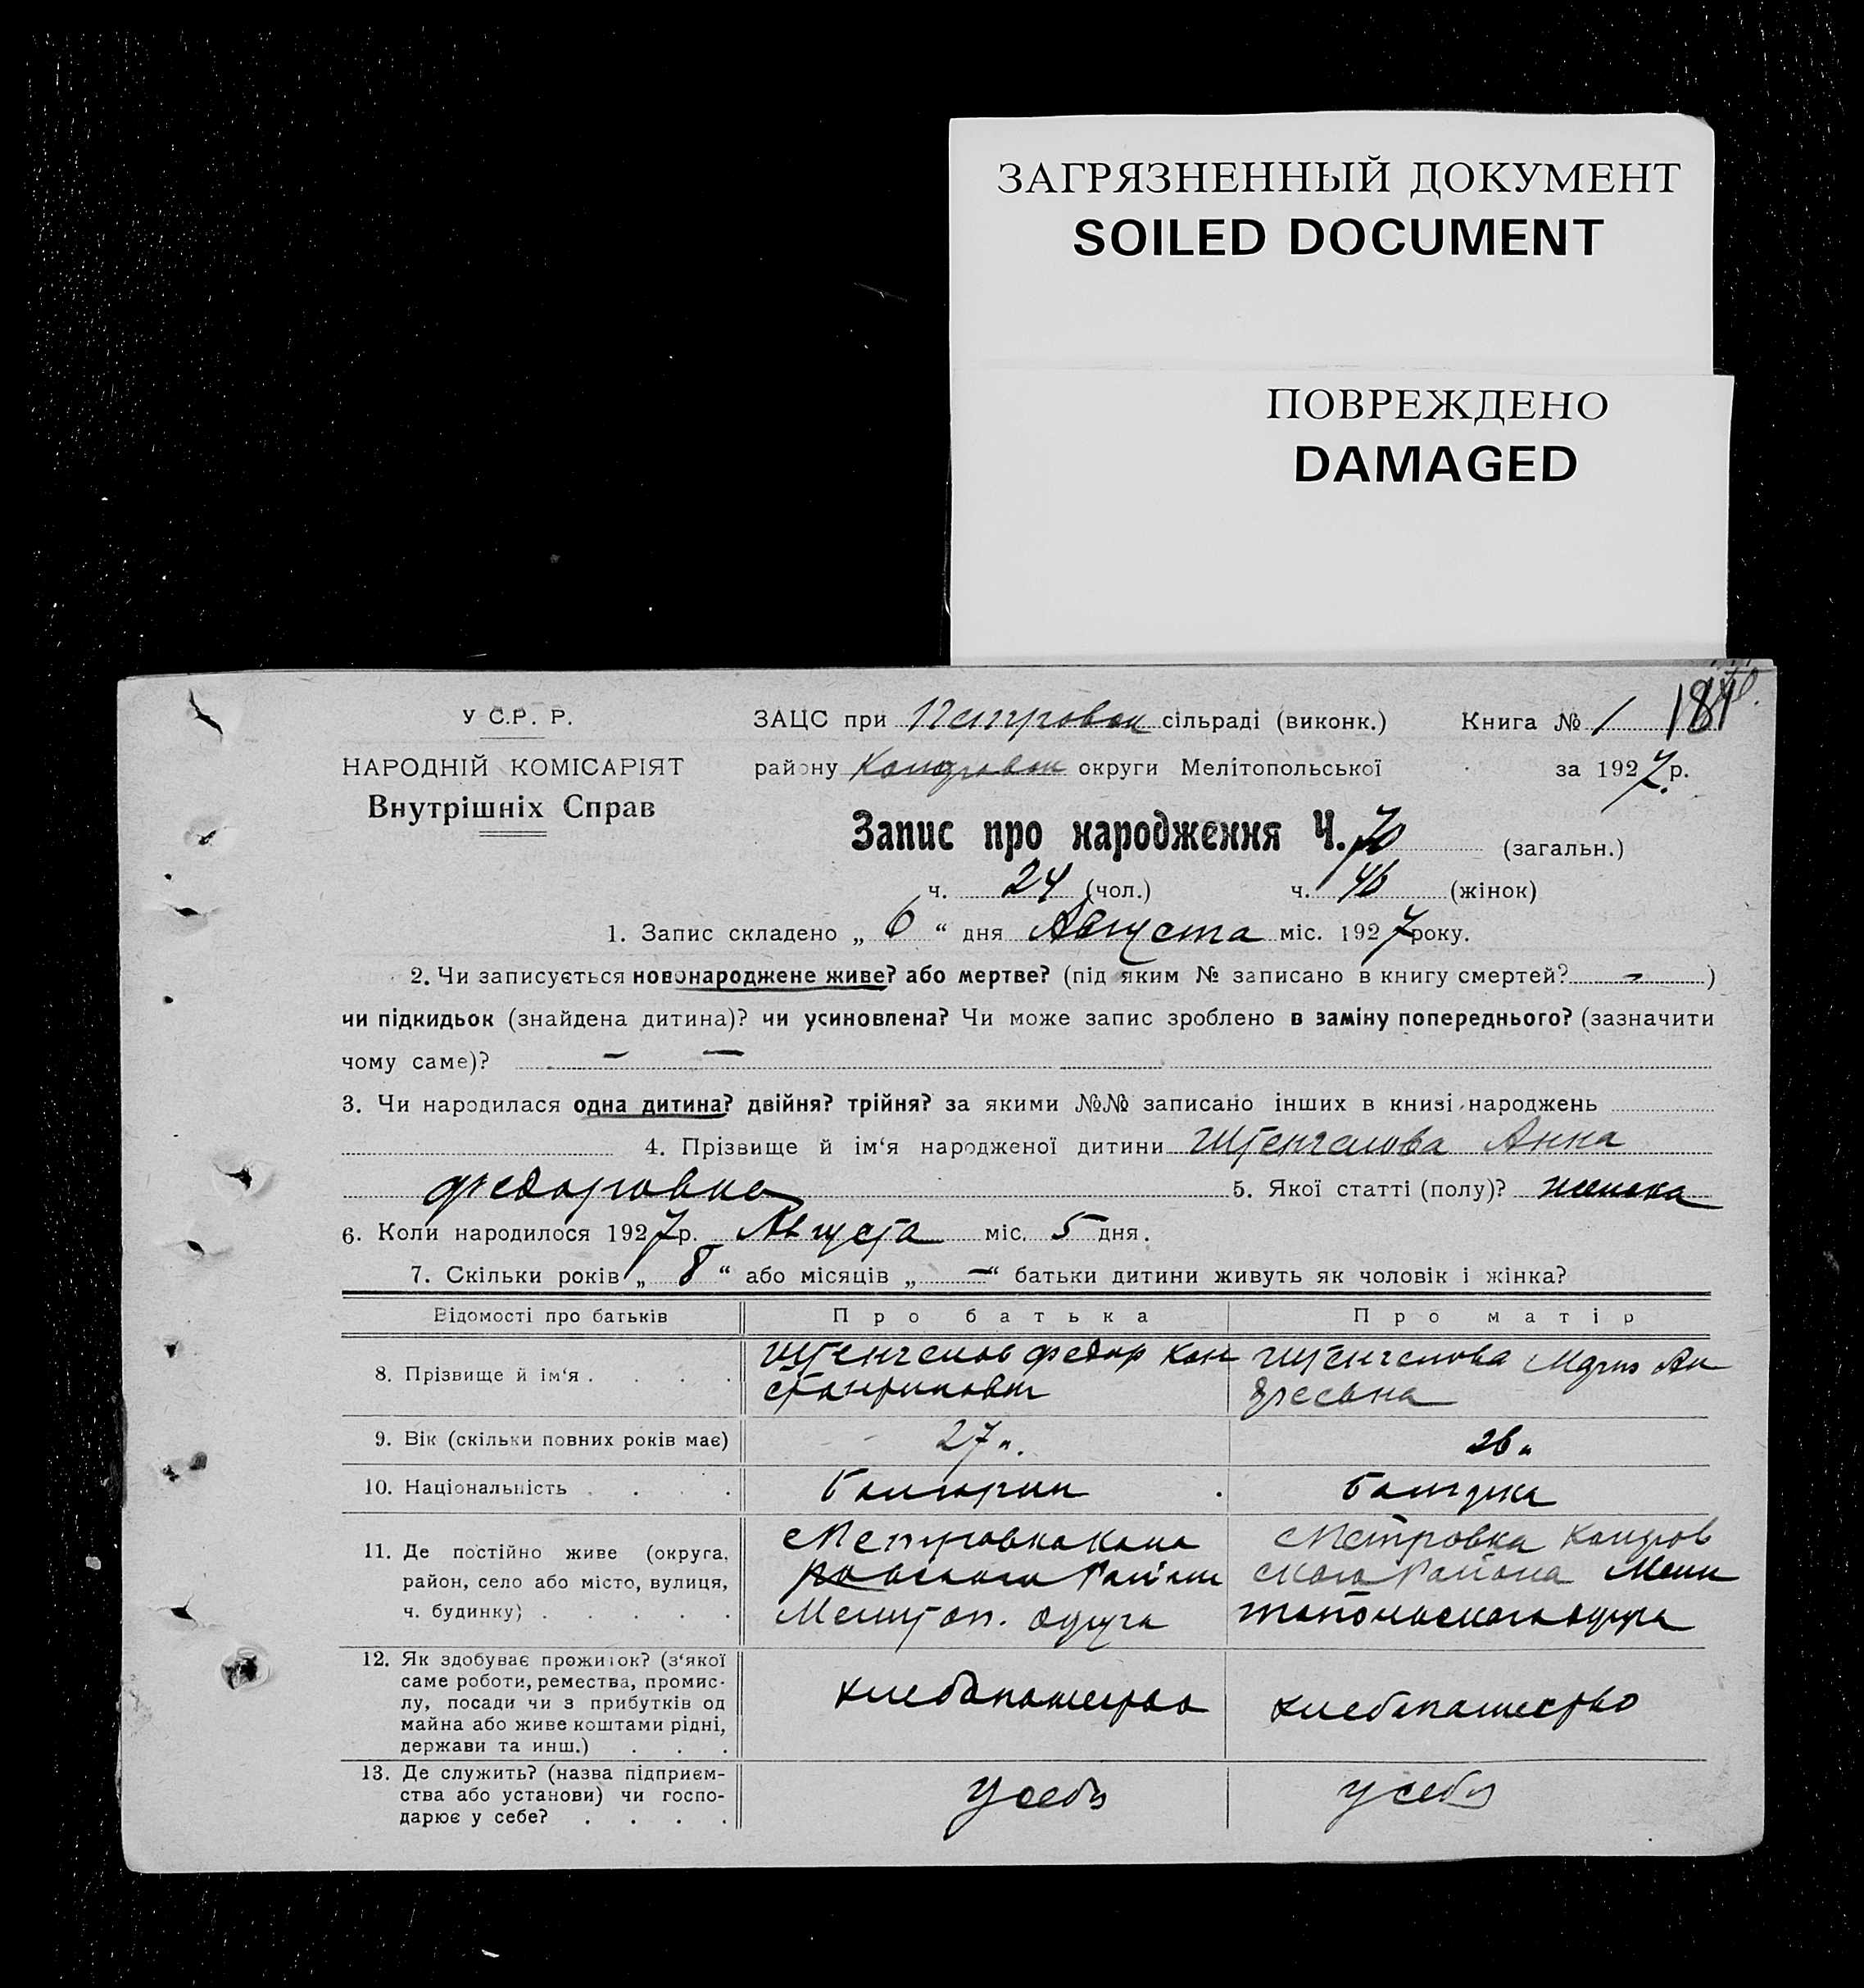 ЗАГРЯЗНЕННЫЙ ДОКУМЕНТ
SOILED DOCUMENT
ПОВРЕЖДЕНО
DAMAGED
181
У С.Р. Р.
ЗАЦС при Петровск сільраді (виконк.) Книга № 1
НАРОДНІЙ КОМІСАРІЯТ
району округи Мелітопольської за 1927 р.
Внутрішніх Справ
Запис про народження Ч. 70 (загальн.)
ч. 24 (чол.) ч. 46 (жінок)
1. Запис складено „ 6 “ дня Августа міс. 1927 року.
2. Чи записується новонароджене живе? або мертве? (під яким № записано в книгу смертей? - )
чи підкидьок (знайдена дитина)? чи усиновлена? Чи може запис зроблено в заміну попереднього? (зазначити
чому саме)? — —
3. Чи народилася одна дитина? двійня? трійня? за якими №№ записано інших в книзі народжень
4. Прізвище й ім‘я народженої дитини Анна
Федоровна 5. Якої статті (полу)? женска
6. Коли народилося 1927 р. Августа міс. 5 дня.
7. Скільки років „ 8 “ або місяців „ — “ батьки дитини живуть як чоловік і жінка?
Відомості про батьків Про батька Про матір
8. Прізвище й ім‘я . . . . Федор Кон
стантинович
Мария Ан
дреевна
9. Вік (скільки повних років має) 27 л. 26 л
10. Національність . . . . Болгарин Болгарка
11. Де постійно живе (округа,
район, село або місто, вулиця,
ч. будинку) . . . . .
Петровка
Района
Мелитоп. округа
Петровка
ского Района Мели
топольского округа
12. Як здобуває прожиток? (з‘якої
саме роботи, ремества, промис-
лу, посади чи з прибутків од
майна або живе коштами рідні,
держави та инш.) . . .
хлебопашество хлебопашество
13. Де служить? (назва підприєм-
ства або установи) чи госпо-
дарює у себе? . . . .
У себя у себя